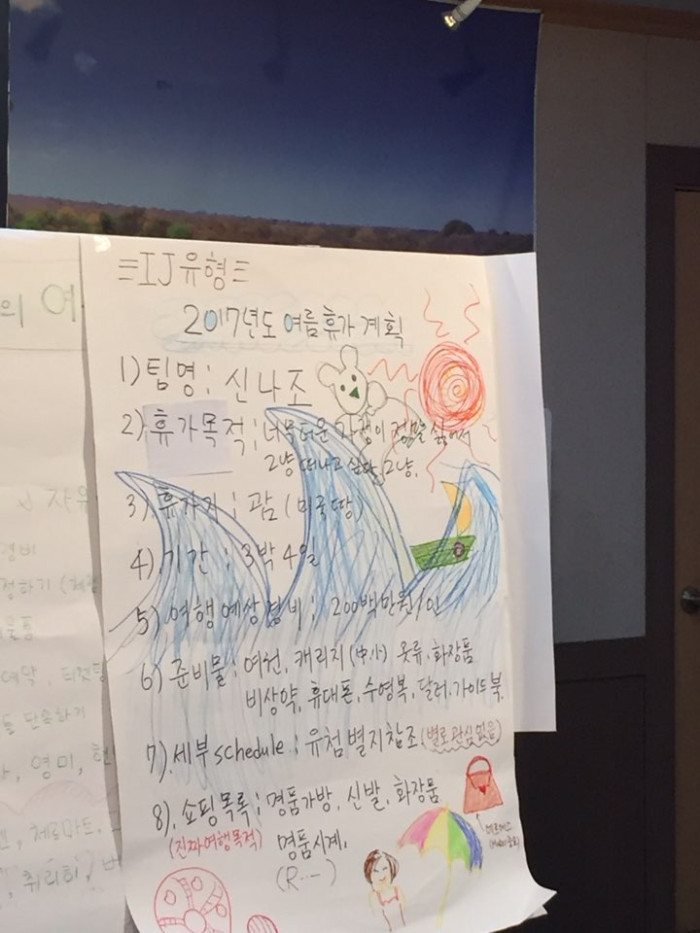 의 여
자유
경비
정하기
예약
들 단속하기
영미
체르마트,
취리히,
IJ유형
2017년도 여름휴가 계획
1) 팀명 : 신나조
2) 휴가목적 ; 너무더운 이 정말 싫어서
그냥 떠나고 싶다. 그냥.
3). 휴가지 ; 괌 (미국땅)
4). 기간 ; 3박 4일
5). 여행 예상 경비 ; 200백만원/인
6) 준비물 ; 여권, 캐리지 (中,小) 옷류, 화장품
비상약, 휴대폰, 수영복, 달러, 가이드북.
7). 세부 schedule ; 유첨 별지참조 (별로 관심없음)
8). 쇼핑목록 ; 명품가방, 신발, 화장품
(진짜여행목적) 명품시계,
(R…)
에르메스